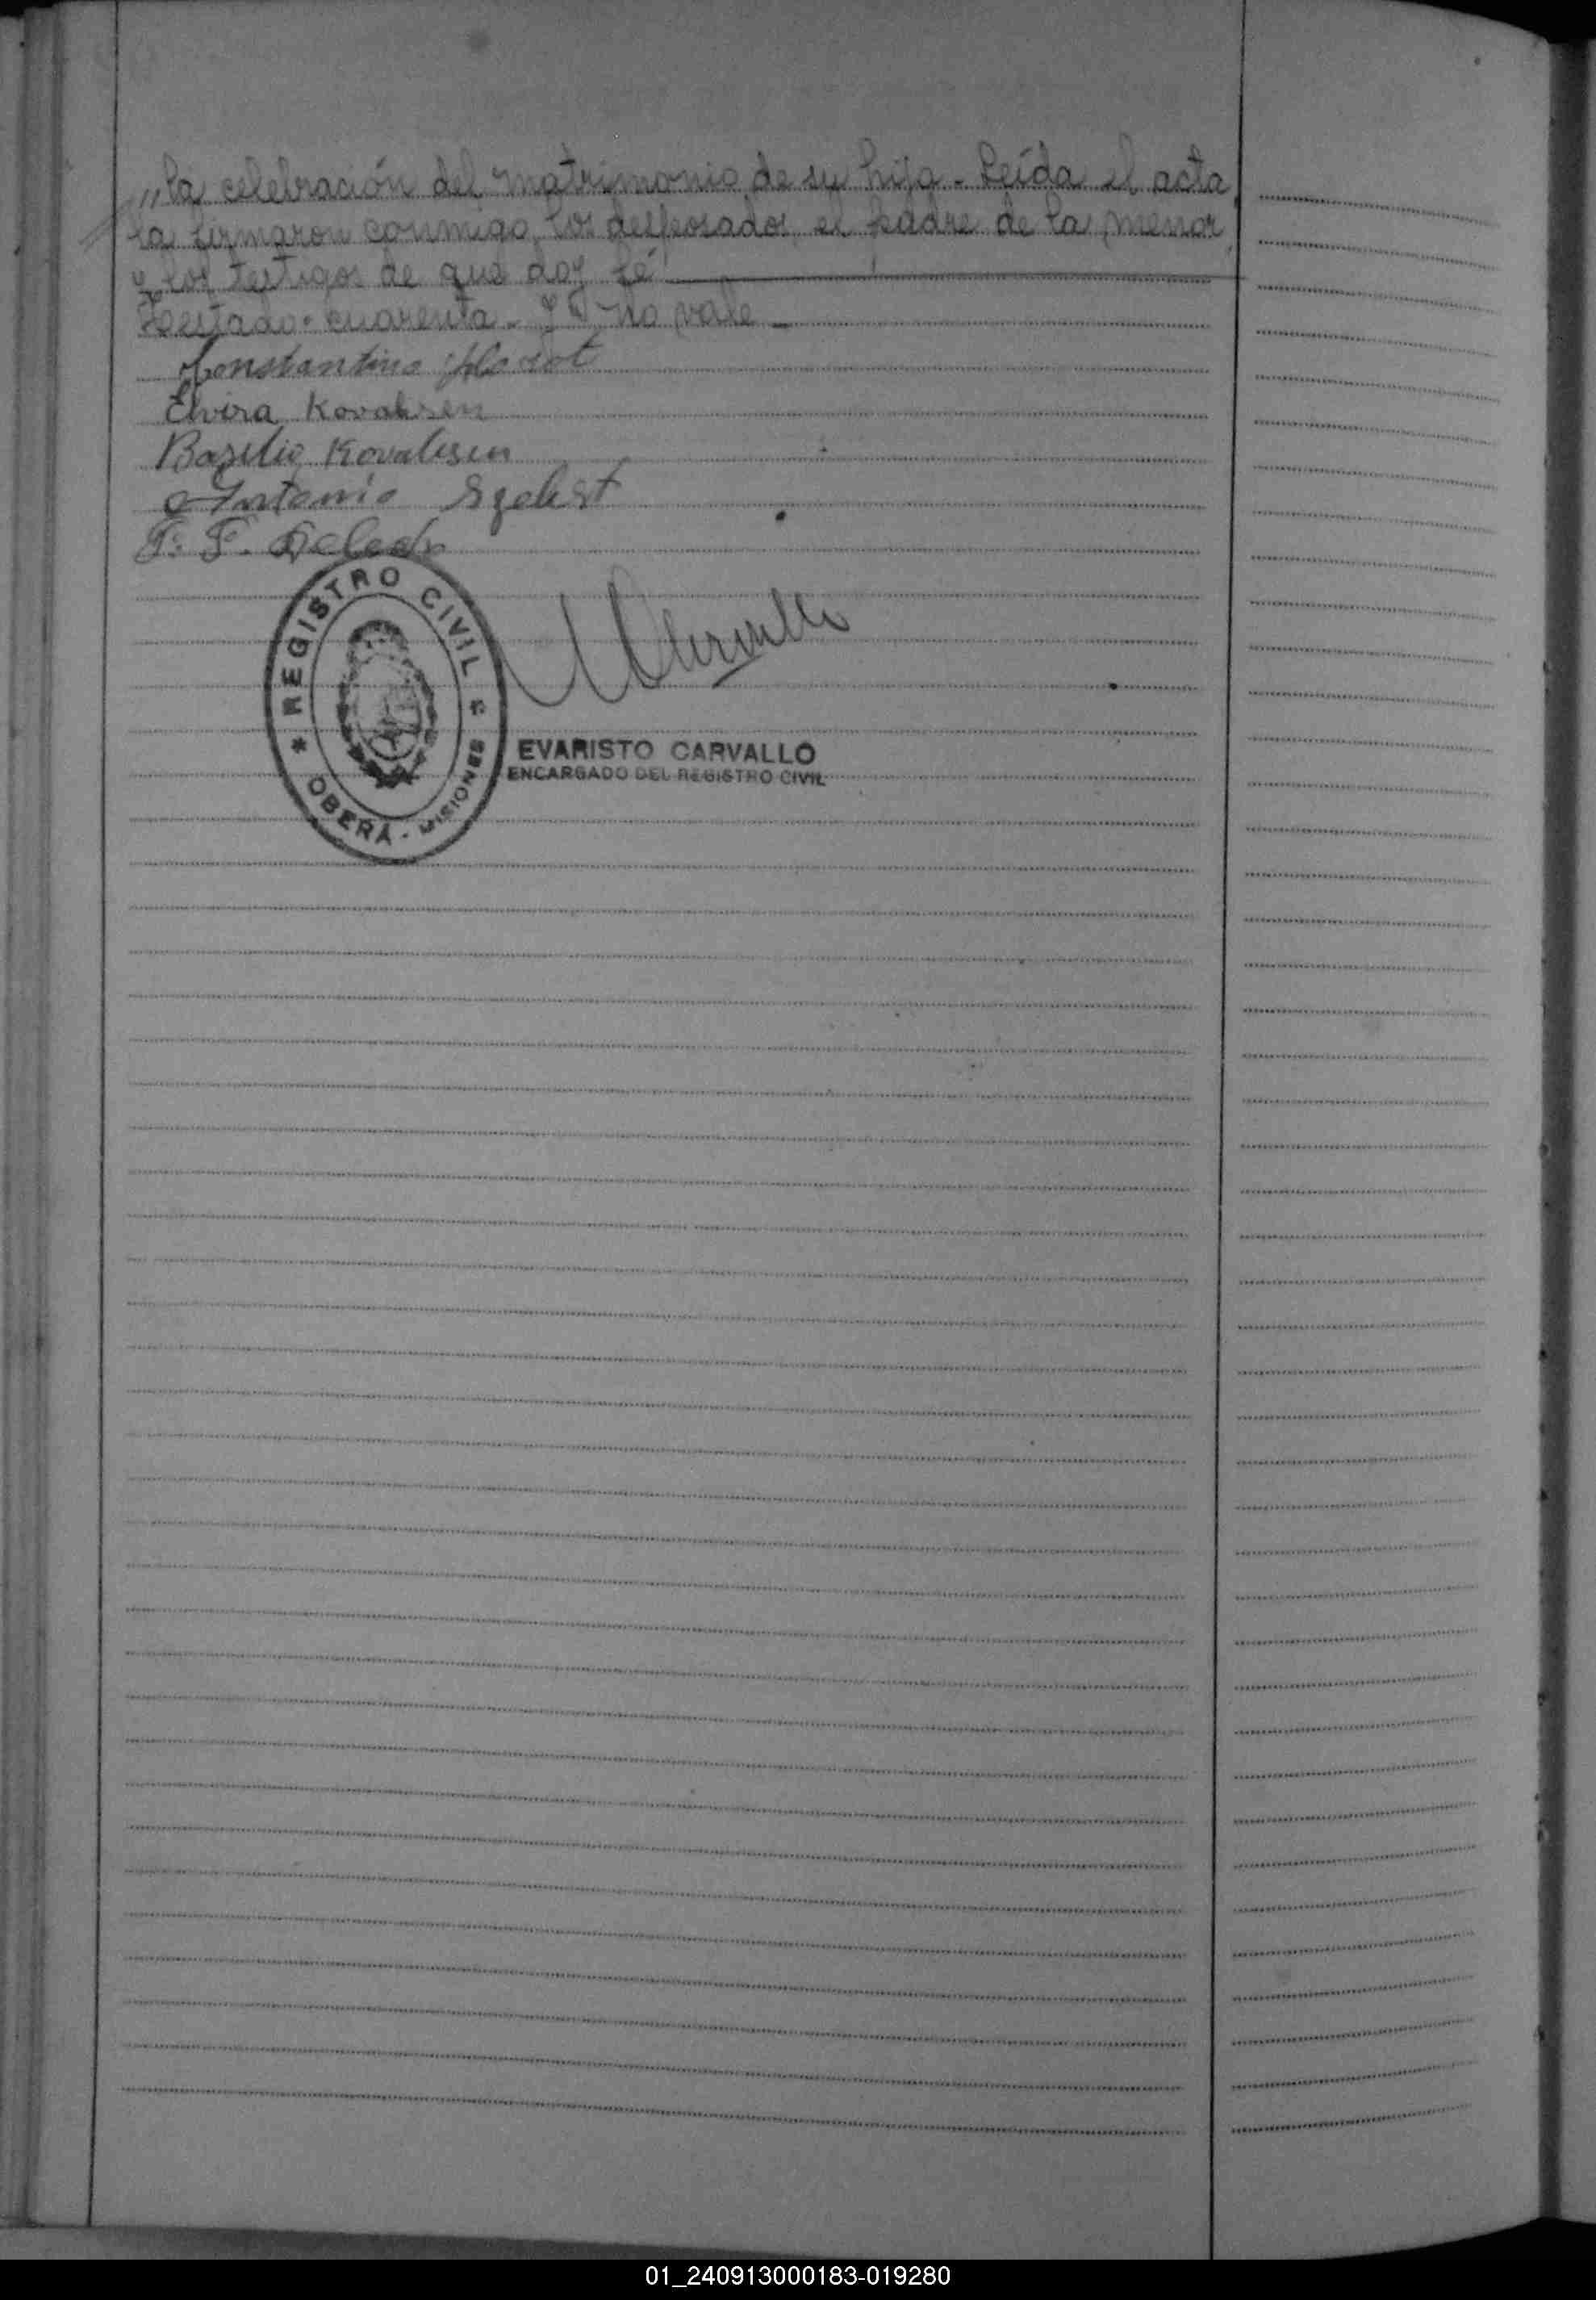 „la celebración del matrimonio de su hija - Leída el acta,
la firmaron conmigo, los desposados, el padre de la menor
y los testigos de que doy fé
Testado: cuarenta - no vale -
Constantino
Elvira Kovalisen
Basilio Kovalisen
Antonio Szekst
F. F.
REGISTRO CIVIL
* OBERÁ - MISIONES
EVARISTO CARVALLO
ENCARGADO DEL REGISTRO CIVIL
01_240913000183-019280